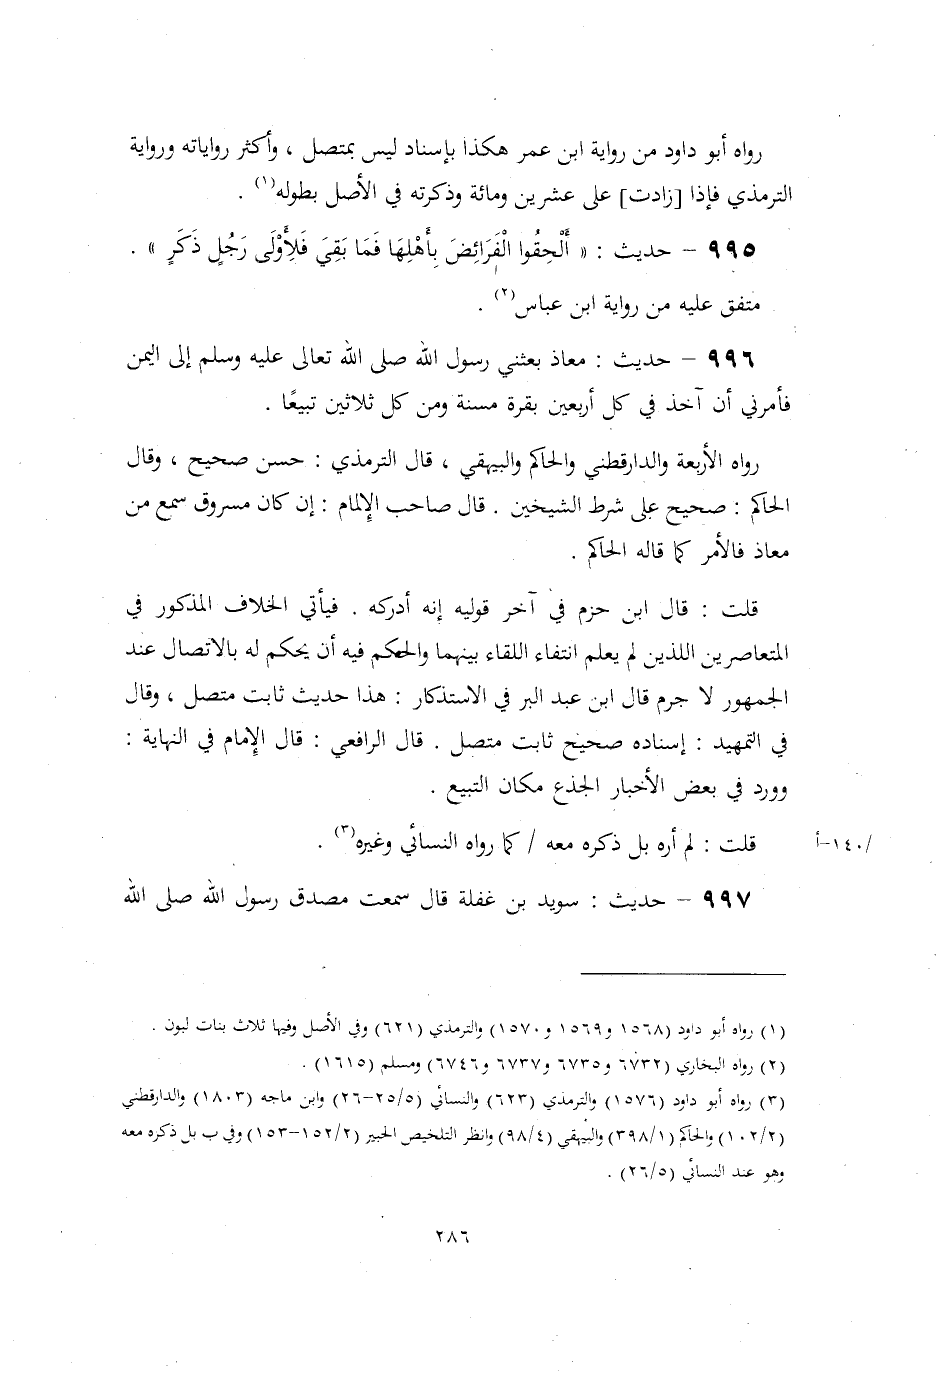 رواه أبو داود من رواية ابن عمر هكذا بإسناد ليس بمتصل ، وأكثر رواياته ورواية
الترمذي فإذا [زادت] على عشرين ومائة وذكرته في الأصل بطوله(١) .
٩٩٥ – حديث : « أَلْحِقُوا الْفَرَائِضَ بِأَهْلِهَا فَمَا بَقِيَ فَلِأَوْلَى رَجُلٍ ذَكَرٍ » .
متفق عليه من رواية ابن عباس(٢) .
٩٩٦ – حديث : معاذ بعثني رسول الله صلى الله تعالى عليه وسلم إلى اليمن
فأمرني أن آخذ في كل أربعين بقرة مسنة ومن كل ثلاثين تبيعًا .
رواه الأربعة والدارقطني والحاكم والبيهقي ، قال الترمذي : حسن صحيح ، وقال
الحاكم : صحيح على شرط الشيخين . قال صاحب الإلمام : إن كان مسروق سمع من
معاذ فالأمر كما قاله الحاكم .
قلت : قال ابن حزم في آخر قوليه إنه أدركه . فيأتي الخلاف المذكور في
المتعاصرين اللذين لم يعلم انتفاء اللقاء بينهما والحكم فيه أن يحكم له بالاتصال عند
الجمهور لا جرم قال ابن عبد البر في الاستذكار : هذا حديث ثابت متصل ، وقال
في التمهيد : إسناده صحيح ثابت متصل . قال الرافعي : قال الإمام في النهاية :
وورد في بعض الأخبار الجذع مكان التبيع .
قلت : لم أره بل ذكره معه / كما رواه النسائي وغيره(٣) .
/١٤٠–أ
٩٩٧ – حديث : سويد بن غفلة قال سمعت مصدق رسول الله صلى الله
(١) رواه أبو داود (١٥٦٨ و١٥٦٩ و١٥٧٠) والترمذي (٦٢١) وفي الأصل وفيها ثلاث بنات لبون .
(٢) رواه البخاري (٦٧٣٢ و٦٧٣٥ و٦٧٣٧ و٦٧٤٦) ومسلم (١٦١٥) .
(٣) رواه أبو داود (١٥٧٦) والترمذي (٦٢٣) والنسائي (٢٥/٥–٢٦) وابن ماجه (١٨٠٣) والدارقطني
(١٠٢/٢) والحاكم (٣٩٨/١) والبيهقي (٩٨/٤) وانظر التلخيص الحبير (١٥٢/٢–١٥٣) وفي ب بل ذكره معه
وهو عند النسائي (٢٦/٥) .
٢٨٦